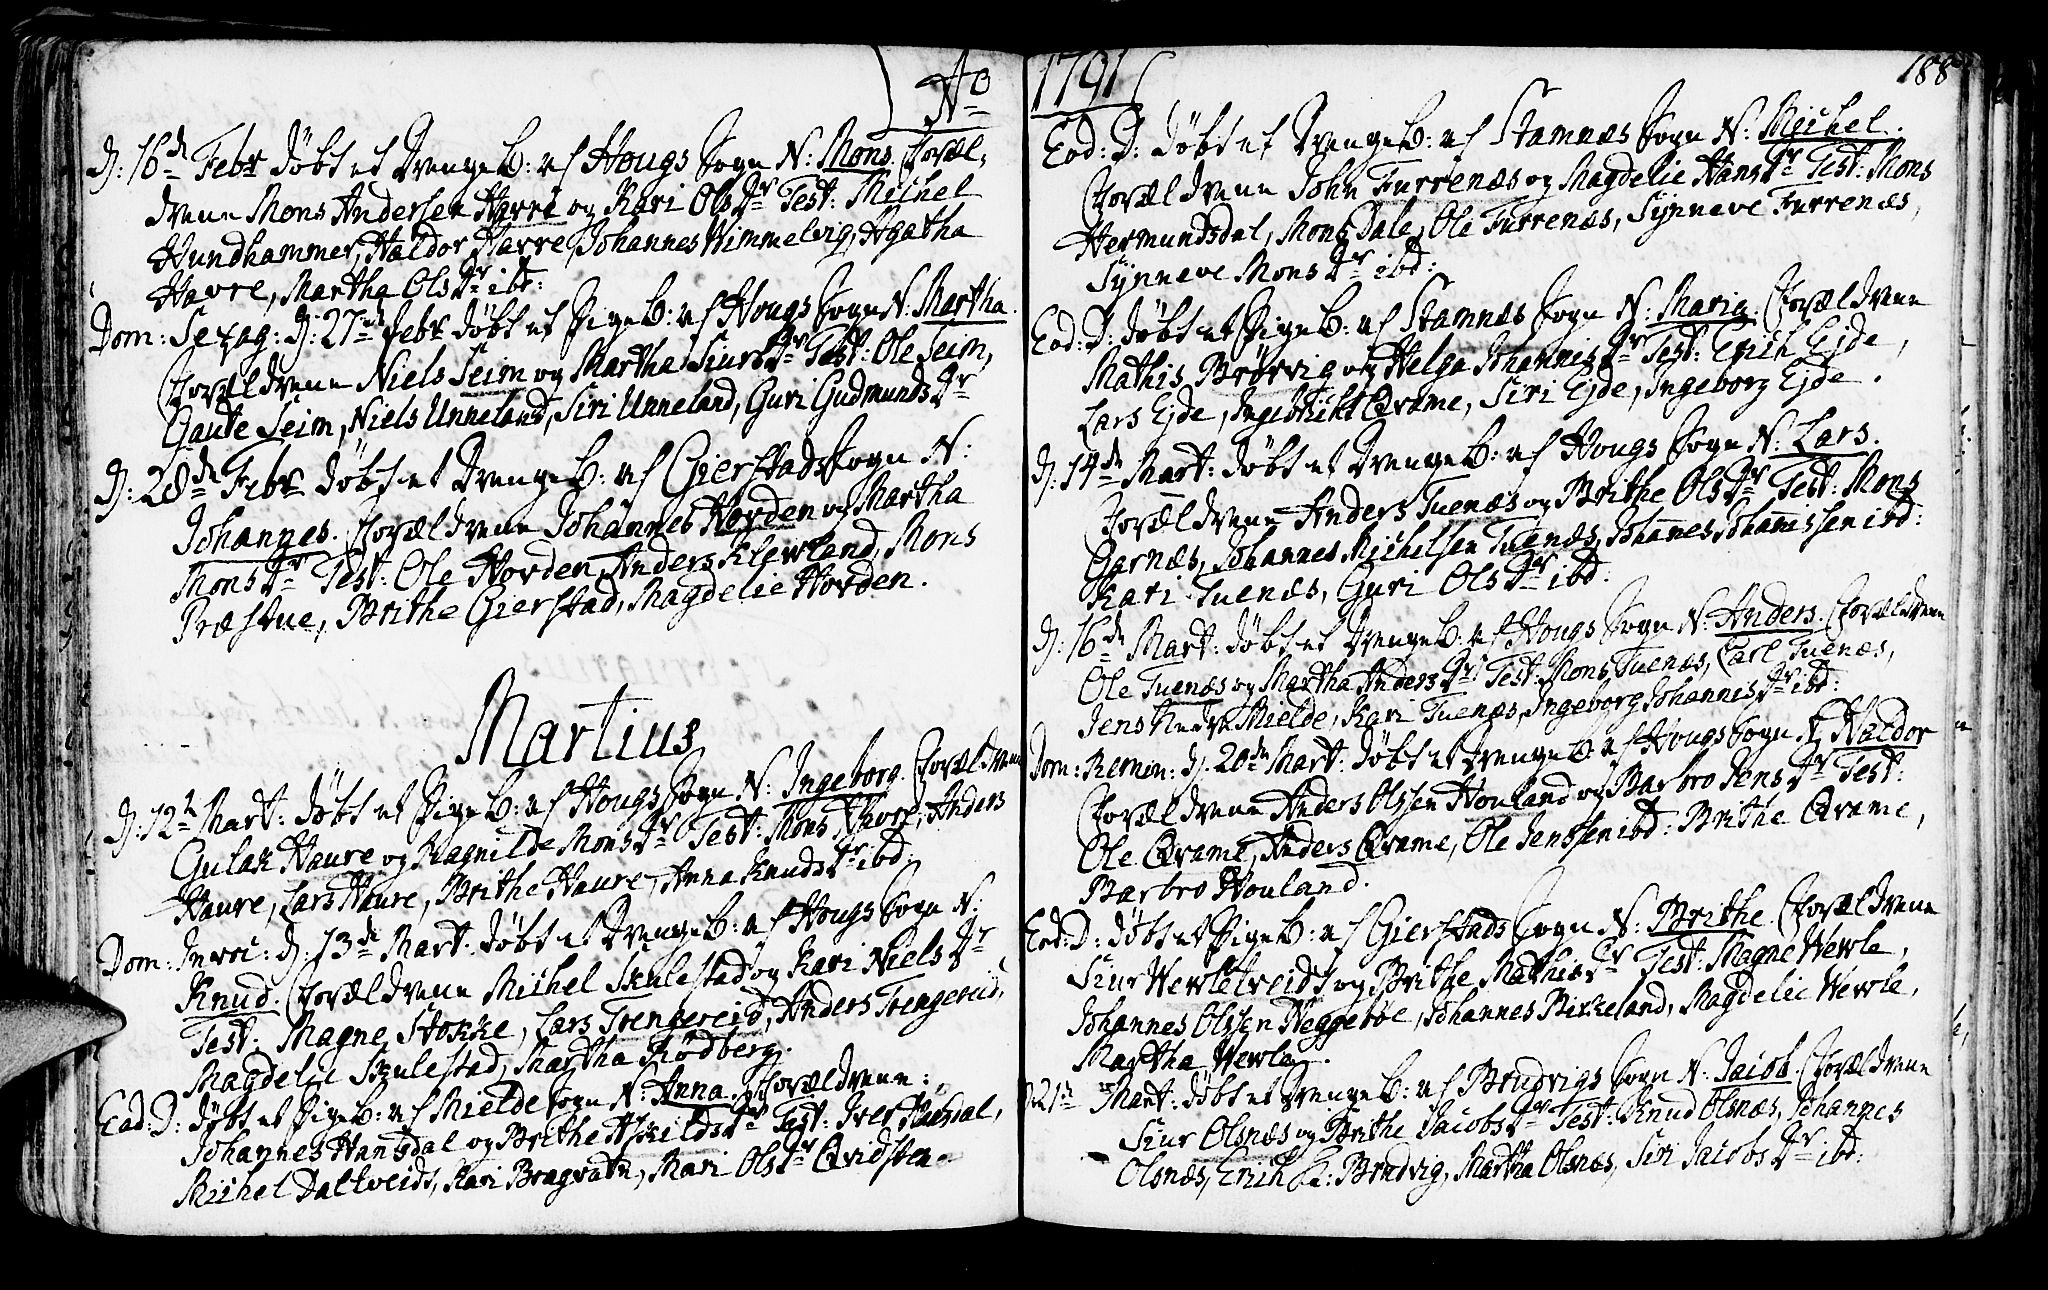 Ao
D: 16de Febr döbt et DrengeB: af Hougs Sogn N: Mons. Foræl-
drene Mons Andersen Havre og Kari OlsDr Test: Michel
Hundhammer, Haldor Havre, Johannes Himmelvig, Agatha
Havre, Martha OlsDr ibd:
Dom: Sexag: D: 27de Febr döbt et PigeB: af Hougs Sogn N: Martha.
Forældrene Niels Seim og Martha SiursDr Test: Ole Seim,
Gaute Seim, Niels Unneland, Siri Unneland, Guri GudmundsDr
D: 28de Febr döbt et DrengeB: af Gierstads Sogn N:
Johannes. Forældrene Johannes Horden og Martha
MonsDr Test: Ole Horden, Anders Klewland, Mons
Præstue, Brithe Gierstad, Magdelie Horden.
Martius
D: 12te Mart: döbt et PigeB: af Hougs Sogn N: Ingeborg. Forældrene
Gulak Haure og Ragnilde MonsDr Test: Mons Thore, Anders
Haure, Lars Haure, Brithe Haure, Anna KnudsDr ibd.
Dom: Invoc: D: 13de Mart: döbt et DrengeB: af Hougs Sogn N:
Knud. Forældrene Michel Skulestad og Kari NielsDr
Test: Magne Stokke, Lars Trengereid, Anders Trengereid,
Magdelie Skulestad, Martha Rödberg.
Eod: D: döbt et PigeB: af Mielde Sogn N: Anna. Forældrene:
Johannes Hansdal og Brithe AskildsDr Test: Iver
Michel Daltveidt, Kari Bragvatn, Mari OlsDr Qvidsten
1791
188
Eod: D: döbt et DrengeB: af Stamnæs Sogn N: Michel.
Forældrene John Furrenæs og Magdelie HansDr Test: Mons
Hermundsdal, Mons Dale, Ole Furrenæs, Synneve Furrenæs,
Synneve MonsDr ibd:
Eod: D: döbt et PigeB: af Stamnæs Sogn N: Maria. Forældrene
Mathis Brörvig og Helga JohannisDr Test: Erich Ejde,
Lars Ejde, Ingebrikt Qvame, Siri Ejde, Ingeborg Ejde.
D: 14de Mart: döbt et DrengeB: af Hougs Sogn N: Lars.
Forældrene Anders Tuenæs og Brithe OlsDr Test: Mons
Garnæs, Johannes Michelsen Tuenæs, Johanes Johannissen ibd:
Kari Tuenæs, Guri OlsDr ibd:
D: 16de Mart: döbt et DrengeB: af Hougs Sogn N: Anders. Forældrene
Ole Tuenæs og Martha AndersDr Test: Mons Tuenæs, Carl Tuenæs,
Jens Nedre Mielde, Kari Tuenæs, Ingeborg JohannisDr ibd:
Dom: Remin: D: 20de Mart: döbt et DrengeB: af Hougs Sogn N: Haldor
Forældrene Anders Olssen Houland og Barbro JensDr Test:
Ole Qvame, Anders Qvame, Ole Jenssen ibd: Brithe Qvame,
Barbro Houland.
Eod: D: döbt et PigeB: af Gierstads Sogn N: Brithe. Forældrene
Siur Wewletveidt og Brithe MathisDr Test: Magne Wewle,
Johannes Olssen Heggeböe, Johannes Birkeland, Magdelie Wewle,
Martha Wewle.
D: 21de Mart: döbt et DrengeB: af Brudvigs Sogn N: Jacob. Forældrene
Siur Olsnæs og Brithe JacobsDr Test: Knud Olsnæs, Johannes
Olsnæs, Erich K: Brudvig, Martha Olsnæs, Siri JacobsDr ibd: